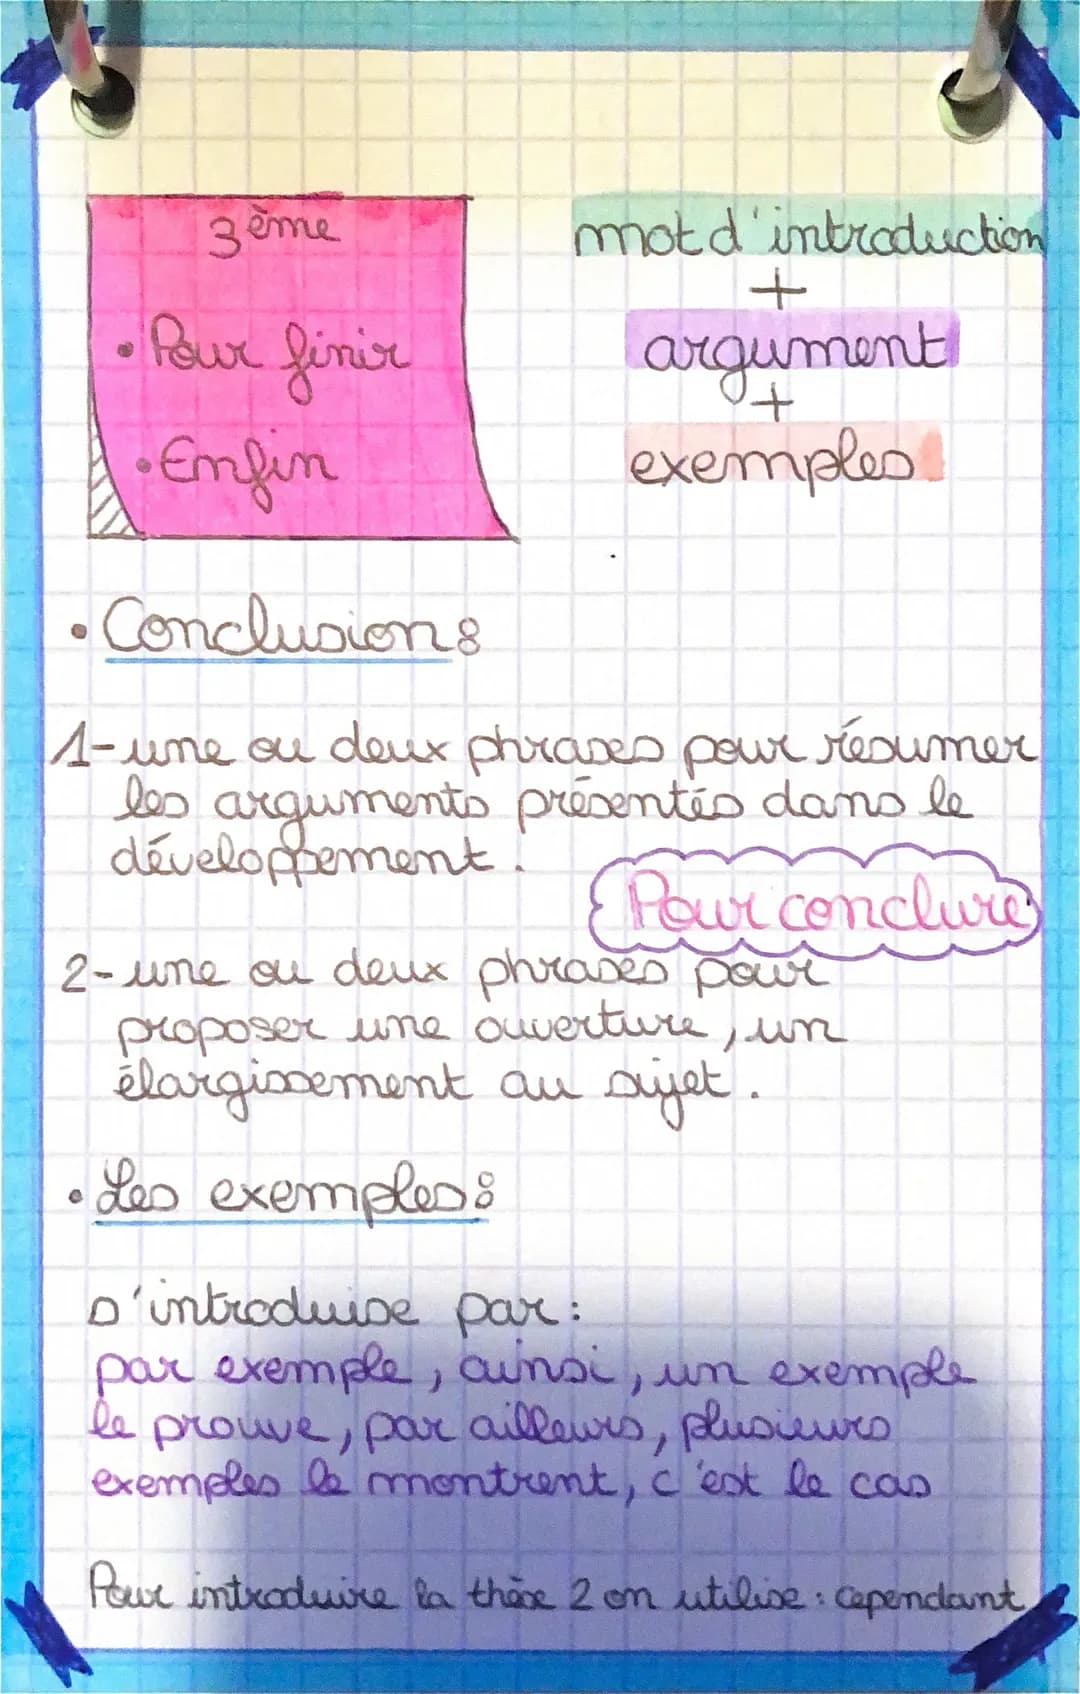 3ème
• Pour finir
• Enfin
mot d'introduction
+
argument
+
exemples
• Conclusion :
1- une ou deux phrases pour résumer
les arguments présentés dans le
développement.
Pour conclure
2- une ou deux phrases pour
proposer une ouverture, un
élargissement au sujet.
• Les exemples :
s'introduise par :
par exemple, ainsi, un exemple
le prouve, par ailleurs, plusieurs
exemples le montrent, c'est le cas
Pour introduire la thèse 2 on utilise : cependant